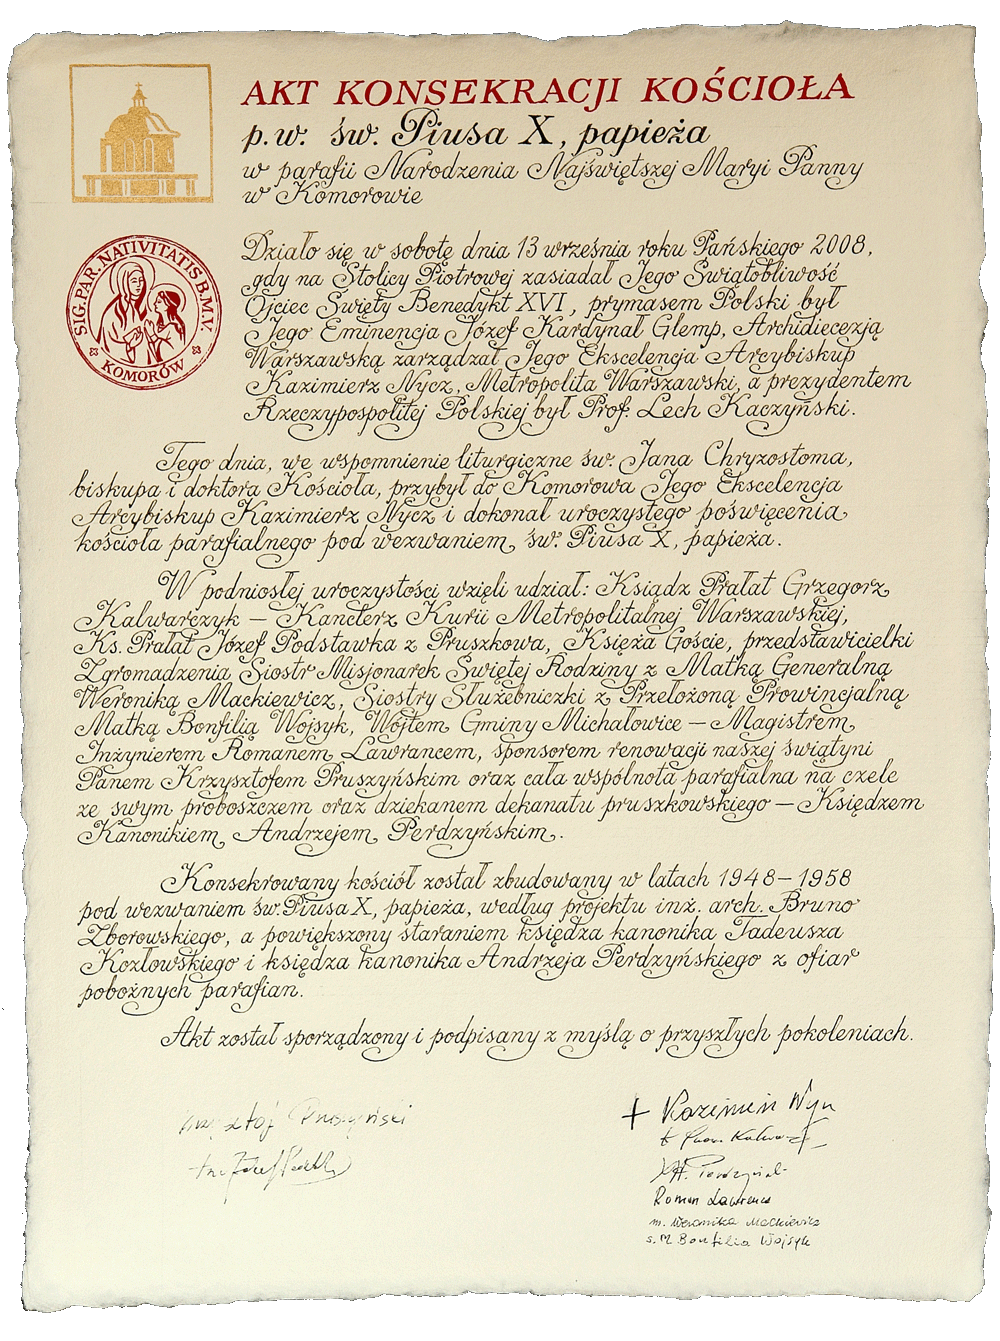 AKT KONSEKRACJI KOŚCIOŁA
p.w. św. Piusa X, papieża
w parafii Narodzenia Najświętszej Maryi Panny
w Komorowie
SIG. PAR. NATIVITATIS B.M.V.
KOMORÓW
Działo się w sobotę dnia 13 września roku Pańskiego 2008,
gdy na Stolicy Piotrowej zasiadał Jego Świątobliwość
Ojciec Święty Benedykt XVI, prymasem Polski był
Jego Eminencja Józef Kardynał Glemp, Archidiecezją
Warszawską zarządzał Jego Ekscelencja Arcybiskup
Kazimierz Nycz, Metropolita Warszawski, a prezydentem
Rzeczypospolitej Polskiej był Prof. Lech Kaczyński.
Tego dnia, we wspomnienie liturgiczne św. Jana Chryzostoma,
biskupa i doktora Kościoła, przybył do Komorowa Jego Ekscelencja
Arcybiskup Kazimierz Nycz i dokonał uroczystego poświęcenia
kościoła parafialnego pod wezwaniem św. Piusa X, papieża.
W podniosłej uroczystości wzięli udział: Ksiądz Prałat Grzegorz
Kalwarczyk – Kanclerz Kurii Metropolitalnej Warszawskiej,
Ks. Prałat Józef Podstawka z Pruszkowa, Księża Goście, przedstawicielki
Zgromadzenia Sióstr Misjonarek Świętej Rodziny z Matką Generalną
Weroniką Mackiewicz, Siostry Służebniczki z Przełożoną Prowincjalną
Matką Bonfilią Wojsyk, Wójtem Gminy Michałowice – Magistrem
Inżynierem Romanem Lawrancem, sponsorem renowacji naszej świątyni
Panem Krzysztofem Pruszyńskim oraz cała wspólnota parafialna na czele
ze swym proboszczem oraz dziekanem dekanatu pruszkowskiego – Księdzem
Kanonikiem Andrzejem Perdzyńskim.
Konsekrowany kościół został zbudowany w latach 1948–1958
pod wezwaniem św. Piusa X, papieża, według projektu inż. arch. Bruno
Zborowskiego, a powiększony staraniem księdza kanonika Tadeusza
Kozłowskiego i księdza kanonika Andrzeja Perdzyńskiego z ofiar
pobożnych parafian.
Akt został sporządzony i podpisany z myślą o przyszłych pokoleniach.
Pruszyński
+ Kazimierz Nycz
Roman Lawrence
m. Weronika Mackiewicz
s. M. Bonfilia Wojsyk